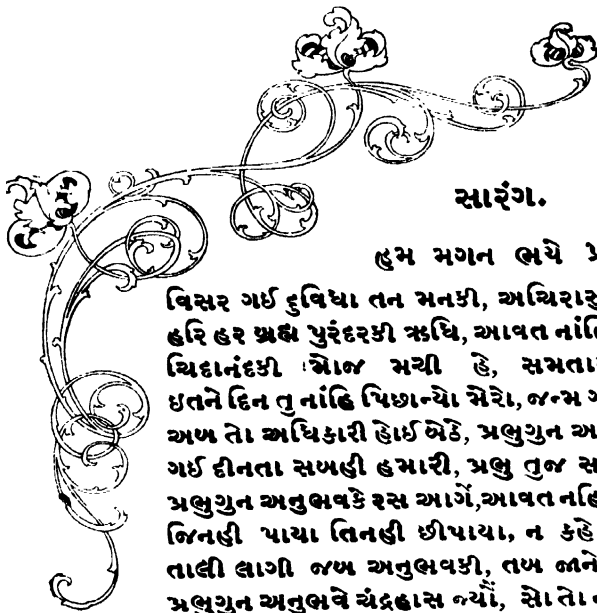 સારંગ.
હમ મગન ભયે પ્ર
વિસર ગઈ દુવિધા તન મનકી, અચિરાસુ
હરિ હર બ્રહ્મ પુરંદરકી ઋધિ, આવત નાંહિ
ચિદાનંદકી મોજ મચી હે, સમતા
ઇતને દિન તુ નાંહિ પિછાન્યો મેરો, જન્મ ગ
અબ તો અધિકારી હોઈ બેઠે, પ્રભુગુન અ
ગઈ દીનતા સબહી હમારી, પ્રભુ તુજ સ
પ્રભુગુન અનુભવકે રસ આગેં,આવત નહિ
જિનહી પાયા તિનહી છીપાયા, ન કહે
તાલી લાગી જબ અનુભવકી, તબ જાને
પ્રભુગુન અનુભવ ચંદ્રહાસ જ્યોં, સો તો ન